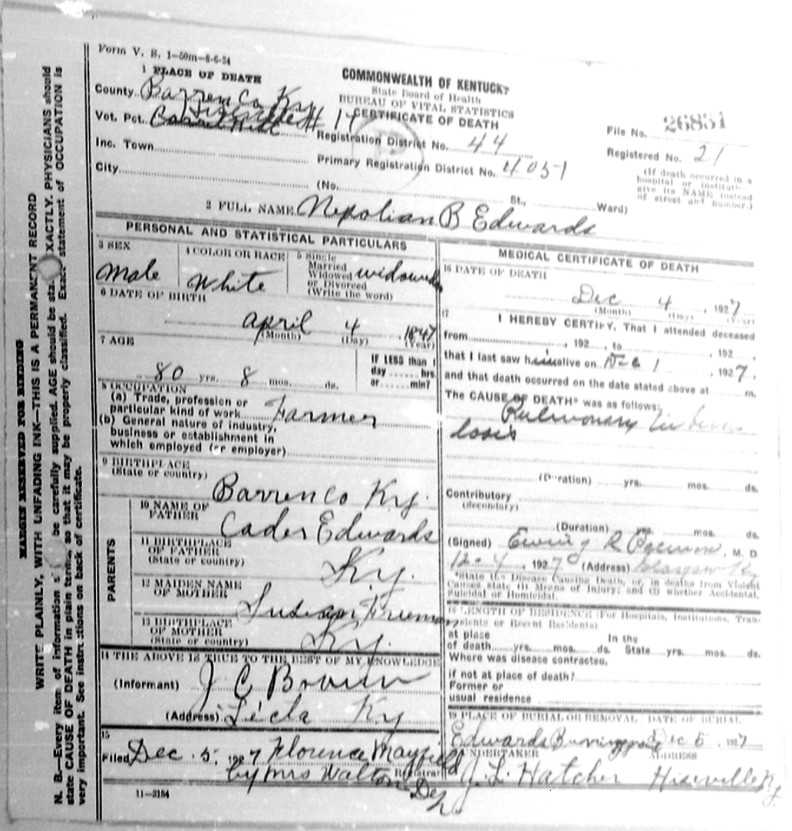 Form V. S. 1—50m—8-6-24
1 PLACE OF DEATH
COMMONWEALTH OF KENTUCKY
State Board of Health
BUREAU OF VITAL STATISTICS
CERTIFICATE OF DEATH
County Barren Co Ky
Vot. Pct. Hiseville # 14
File No. 26851
Registration District No. 44
Registered No. 21
Inc. Town
Primary Registration District No. 4051
City
(No. St., Ward)
(If death occurred in a
hospital or institution
give its NAME instead
of street and number.)
2 FULL NAME Nepolian B Edwards
PERSONAL AND STATISTICAL PARTICULARS
3 SEX
Male
4 COLOR OR RACE
White
5 Single
Married
Widowed
or Divorced
(Write the word)
widowed
6 DATE OF BIRTH
April 4 1847
(Month) (Day) (Year)
7 AGE
80 yrs. 8 mos. ds.
IF LESS than 1
day ----- hrs.
or ----- min?
8 OCCUPATION
(a) Trade, profession or
particular kind of work Farmer
(b) General nature of industry,
business or establishment in
which employed (or employer)
9 BIRTHPLACE
(State or country)
Barren Co Ky.
PARENTS
10 NAME OF
FATHER
Cader Edwards
11 BIRTHPLACE
OF FATHER
(State or country)
Ky.
12 MAIDEN NAME
OF MOTHER
Freeman
13 BIRTHPLACE
OF MOTHER
(State or country)
Ky.
14 THE ABOVE IS TRUE TO THE BEST OF MY KNOWLEDGE
(Informant) J C
(Address) Ky
15
Filed Dec 5, 1927 Florence Mayfield
by Mrs Walton Registrar
Dep
11—3184
MEDICAL CERTIFICATE OF DEATH
16 DATE OF DEATH
Dec 4, 1927
(Month) (Day) (Year)
17
I HEREBY CERTIFY, That I attended deceased
from , 192 , to , 192 ,
that I last saw him alive on Dec 1, 1927.
and that death occurred on the date stated above at m.
The CAUSE OF DEATH* was as follows:
Pulmonary Tubercu
losis
(Duration) yrs. mos. ds.
Contributory
(Secondary)
(Duration) yrs. mos. ds.
(Signed) R , M. D.
12-4, 1927 (Address) Glasgow Ky
*State the Disease Causing Death, or, in deaths from Violent
Causes state (1) Means of Injury; and (2) whether Accidental,
Suicidal or Homicidal.
18 LENGTH OF RESIDENCE (For Hospitals, Institutions, Tran-
sients or Recent Residents)
at place In the
of death yrs. mos. ds. State yrs. mos. ds.
Where was disease contracted,
if not at place of death?
Former or
usual residence
19 PLACE OF BURIAL OR REMOVAL DATE OF BURIAL
Edwards Dec 5, 1927
UNDERTAKER ADDRESS
J. L. Hatcher Hiseville Ky.
MARGIN RESERVED FOR BINDING
WRITE PLAINLY, WITH UNFADING INK—THIS IS A PERMANENT RECORD
N. B.—Every item of information be carefully supplied. AGE should be EXACTLY. PHYSICIANS should
state CAUSE OF DEATH in plain terms so that it may be properly classified. Exact statement of OCCUPATION is
very important. See instructions on back of certificate.